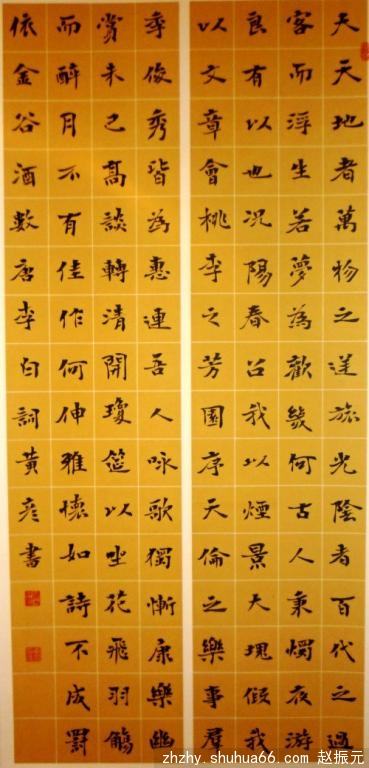 夫天地者萬物之逆旅光陰者百代之過
客而浮生若夢為歡幾何古人秉燭夜游
良有以也况陽春召我以煙景大塊假我
以文章會桃李之芳園序天倫之樂事羣
季俊秀皆為惠連吾人咏歌獨慚康樂幽
賞未已髙談轉清開瓊筵以坐花飛羽觴
而醉月不有佳作何伸雅懷如詩不成罰
依金谷酒數唐李白詞黃彦書
zhzhy.shuhua66.com 赵振元